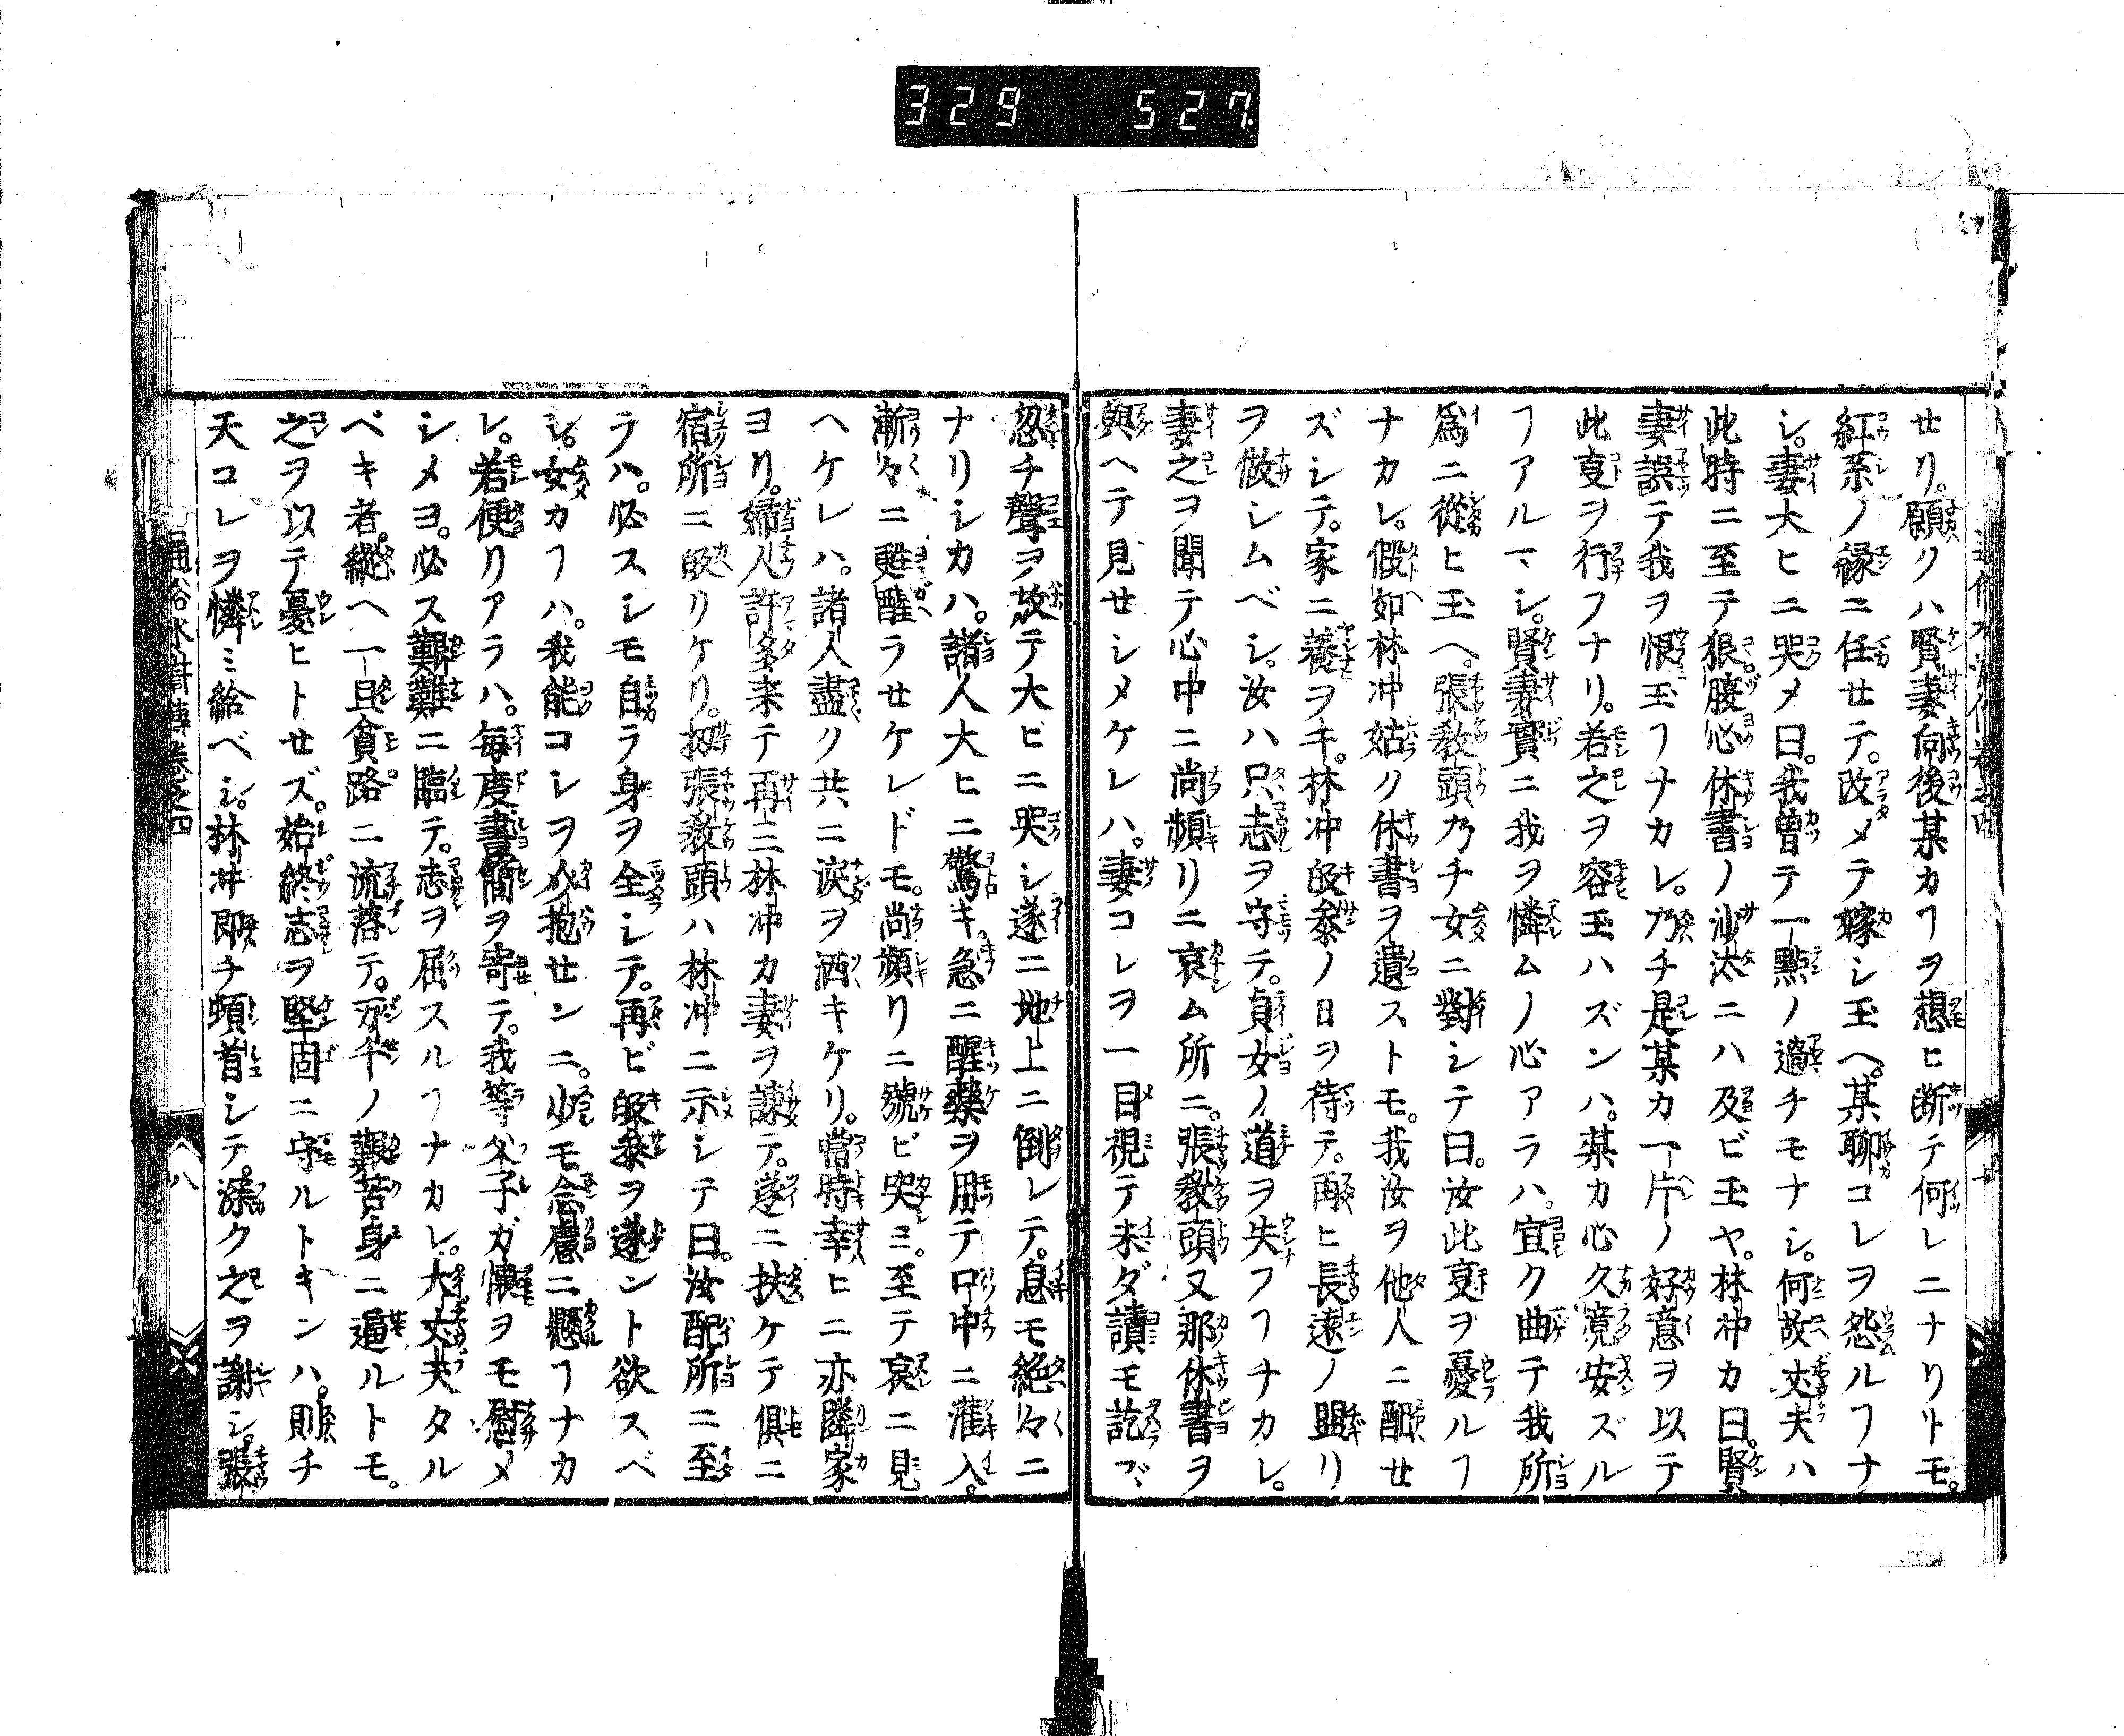 329 527
セリ。願クハ賢妻向後某カヿヲ想ヒ断テ何レニナリトモ。
紅糸ノ縁ニ任セテ。改メテ嫁シ玉ヘ。某聊コレヲ怨ルヿナ
シ。妻大ヒニ哭メ曰。我曽テ一點ノ過チモナシ。何故丈夫ハ
此時ニ至テ狠腹必休書ノ沙汰ニハ及ビ玉ヤ。林冲カ曰。賢
妻誤テ我ヲ恨玉フナカレ。乃チ是某カ一片ノ好意ヲ以テ
此㕝ヲ行フナリ。若之ヲ容玉ハズンハ。某カ心久竟安ズル
ヿアルマシ。賢妻實ニ我ヲ憐ムノ心アラハ。宜ク曲テ我所
爲ニ從ヒ玉ヘ。張敎頭乃チ女ニ對シテ曰。汝此㕝ヲ憂ルヿ
ナカレ。假如林冲姑ク休書ヲ遺ストモ。我汝ヲ他人ニ配セ
ズシテ。家ニ養ヲキ。林冲皈參ノ日ヲ待テ。再ヒ長遠ノ興リ
ヲ做シムベシ。汝ハ只志ヲ守テ。貞女ノ道ヲ失フヿナカレ。
妻之ヲ聞テ心中ニ尚頻リニ哀ム所ニ。張敎頭又那休書ヲ
與ヘテ見セシメケレハ。妻コレヲ一目視テ未ダ讀モ訖ラヾ
忽チ聲ヲ放テ大ヒニ哭シ遂ニ地上ニ倒レテ。息モ絶々ニ
ナリシカハ。諸人大ヒニ驚キ。急ニ醒藥ヲ用テ口中ニ灌入。
漸々ニ甦醒ラセケレドモ。尚頻リニ號ビ哭ミ。至テ哀ニ見
ヘケレハ。諸人盡ク共ニ淚ヲ洒キケリ。當時幸ヒニ亦隣家
ヨリ。婦人許多来テ再三林冲カ妻ヲ諫テ。遂ニ扶ケテ俱ニ
宿所ニ皈リケリ。扨張敎頭ハ林冲ニ示シテ曰。汝配所ニ至
テハ。必スシモ自ラ身ヲ全シテ。再ビ皈參ヲ遂ント欲スベ
シ。女カヿハ。我能コレヲ介抱センニ。少モ念慮ニ懸ヿナカ
レ。若便リアラハ。毎度書簡ヲ寄テ。我等父子ガ懐ヲモ慰メ
シメヨ。必ス艱難ニ臨テ。志ヲ屈スルヿナカレ。大丈夫タル
ベキ者。縱ヘ一旦貧路ニ流落テ。万千ノ艱苦身ニ逼ルトモ。
之ヲ以テ憂ヒトセズ。始終志ヲ堅固ニ守ルトキンハ。則チ
天コレヲ憐ミ給ベシ。林冲即チ頓首シテ。深ク之ヲ謝シ。張
通俗水滸傳卷之四
八